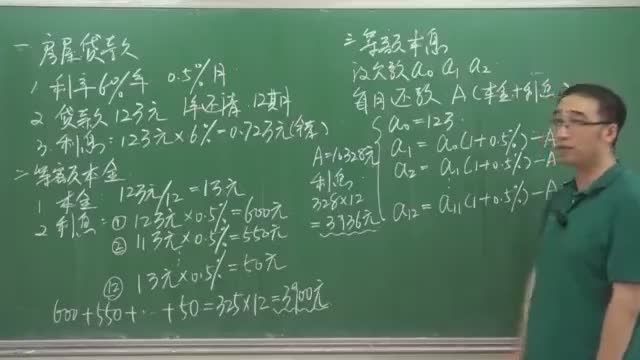 一 房屋贷款
1 利率6%/年 0.5%/月
2 贷款12万元 1年还清 12期
3. 利息:12万元×6%=0.72万元
二 等额本金
1 本金:12万元/12=1万元
2 利息:①12万元×0.5%=600元
②11万元×0.5%=550元
⋮
⑫1万元×0.5%=50元
600+550+…+50=325×12=3900元
三 等额本息
设欠款a0 a1 a2
每月还款 A(本金+利息)
a0=12万
a1=a0(1+0.5%)-A
a2=a1(1+0.5%)-A
⋮
a12=a11(1+0.5%)-A
A=10328元
利息:
328×12
=3936元